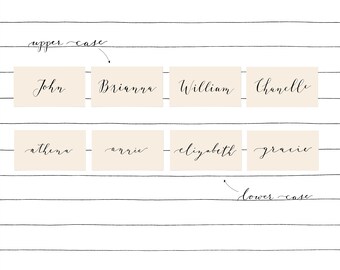 upper-case
John Brianna William Chanelle
athena annie elizabeth gracie
lower-case